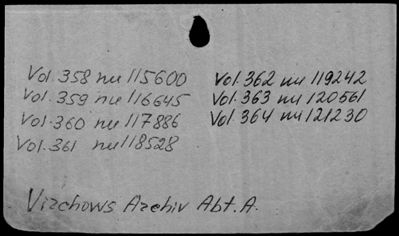 Vol. 358 nu 115600
Vol. 359 nu 116645
Vol. 360 nu 117886
Vol. 361 nu 118528
Vol. 362 nu 119242
Vol. 363 nu 120561
Vol. 364 nu 121230
Virchows Archiv Abt. A.